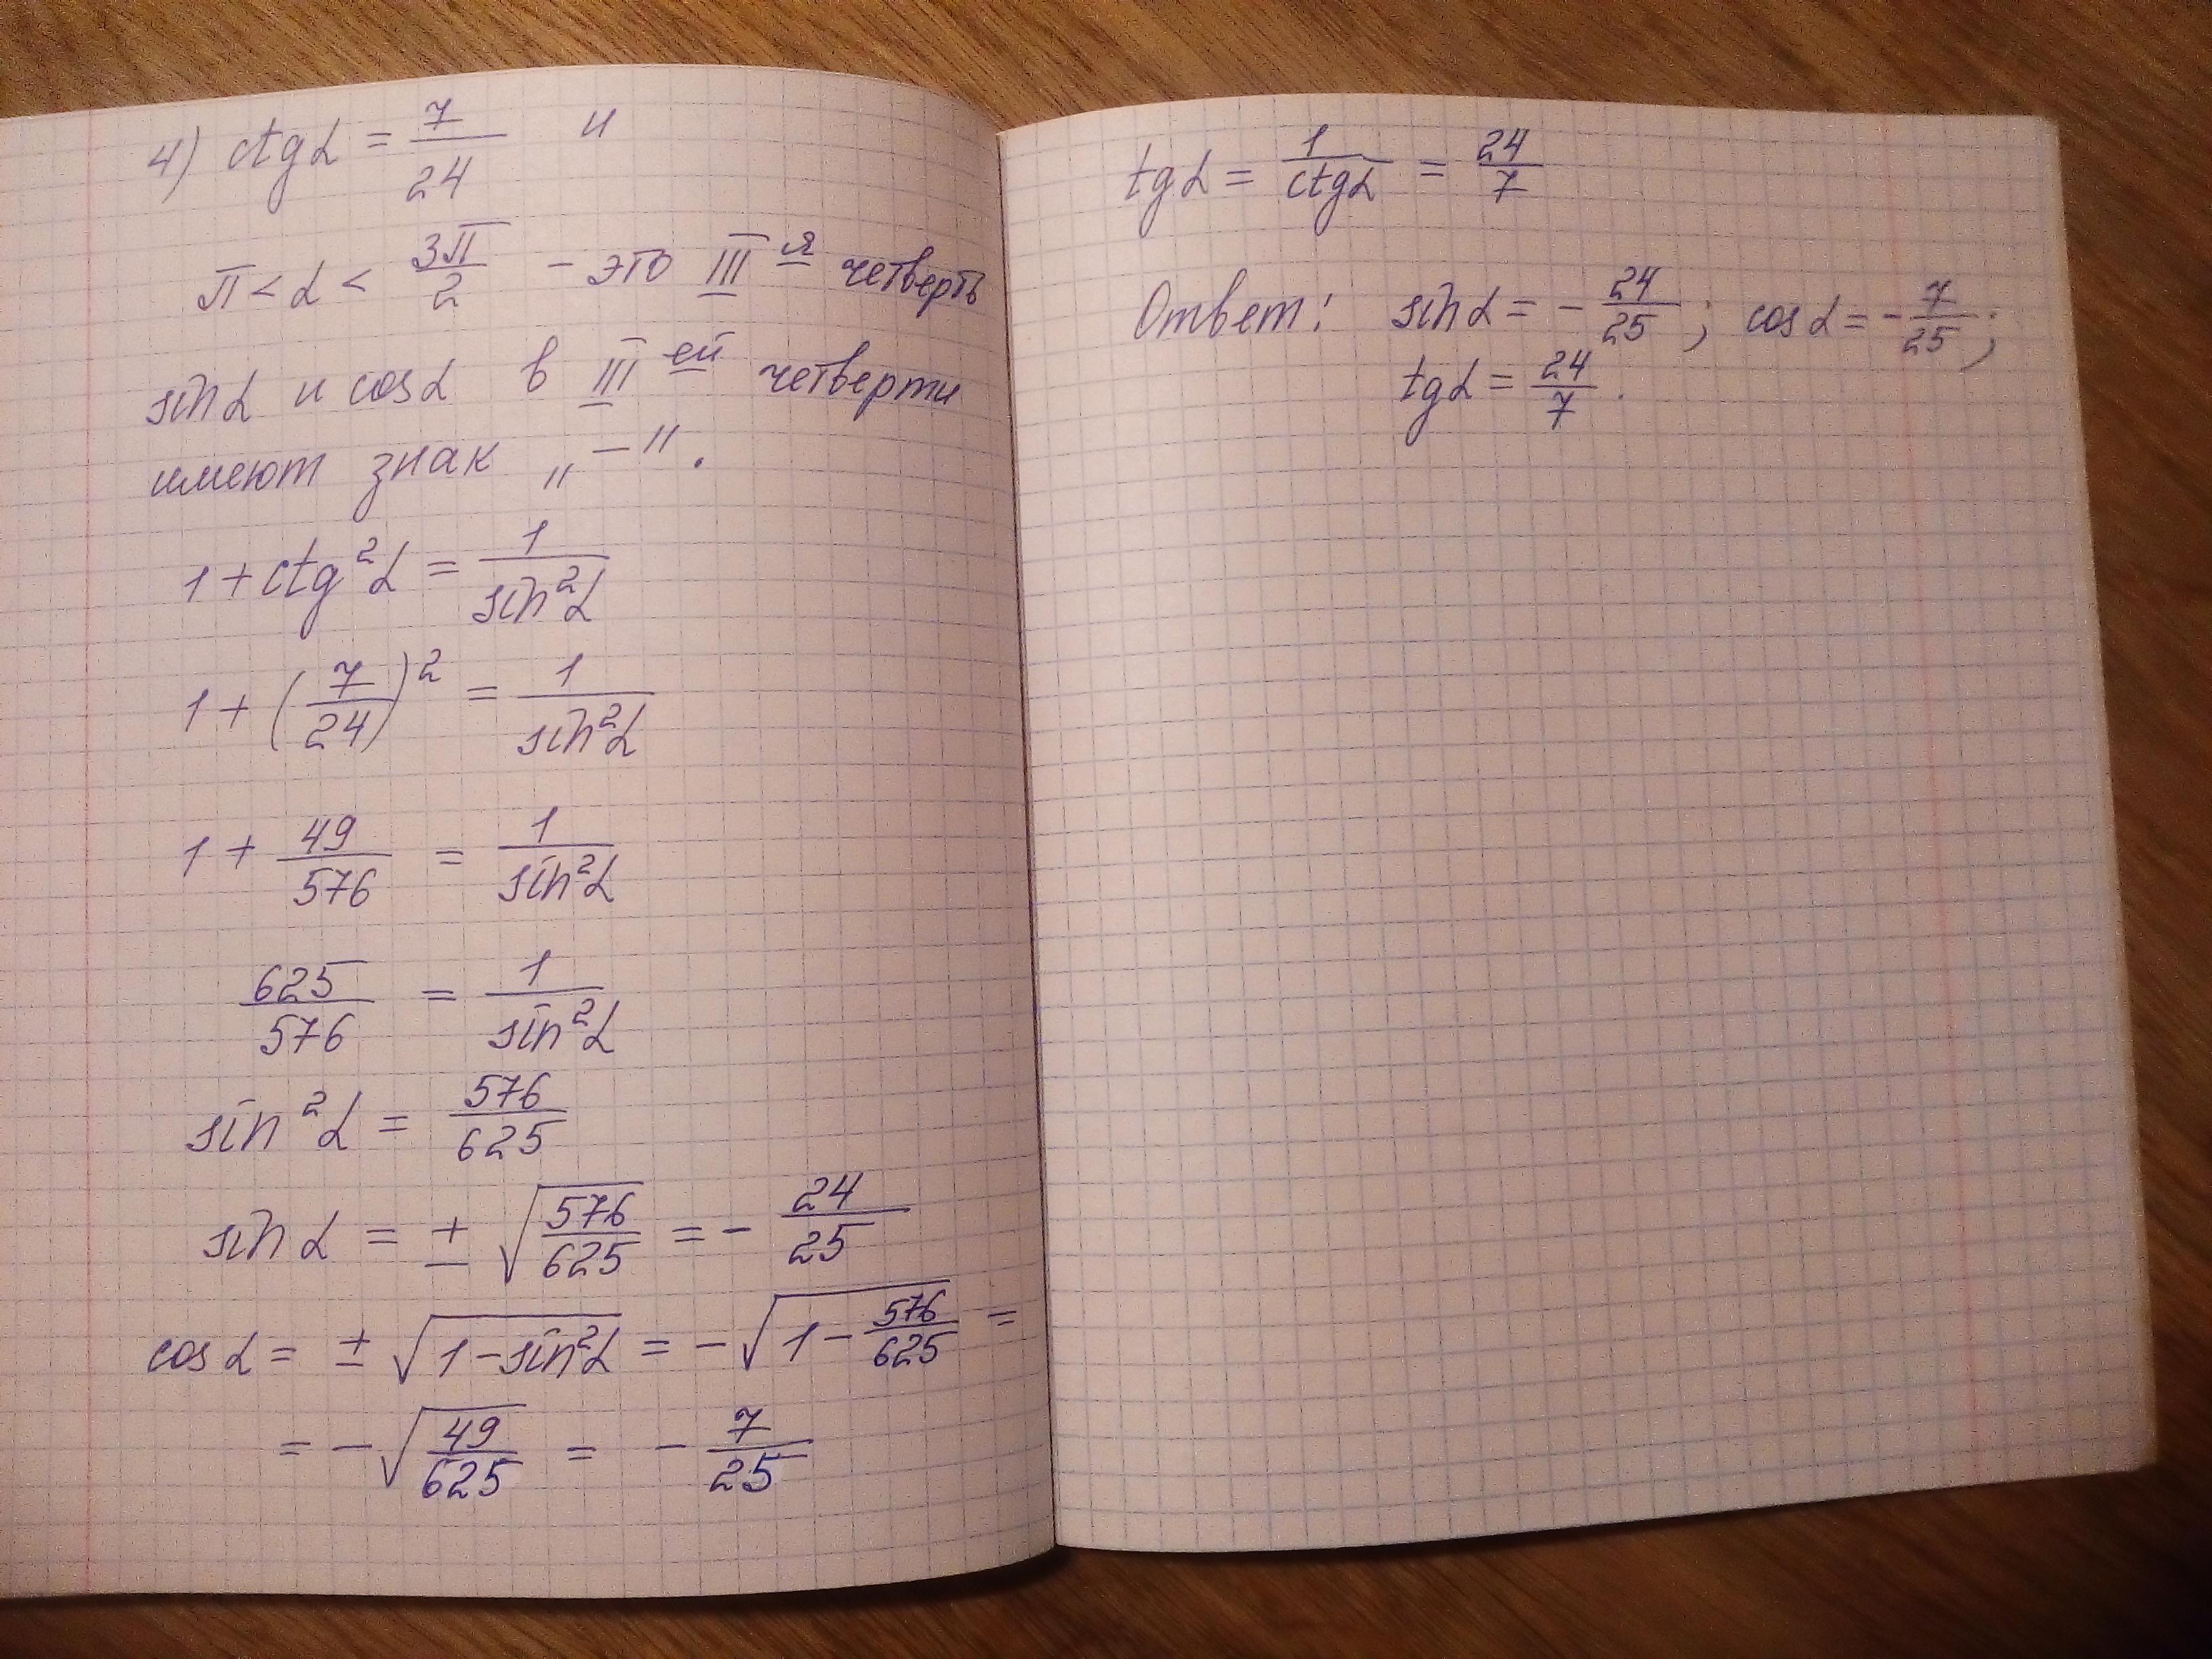 4) ctgα = 7/24 и
π < α < 3π/2 - это III я четверть
sinα и cosα в III ей четверти
имеют знак „-".
1 + ctg²α = 1/sin²α
1 + (7/24)² = 1/sin²α
1 + 49/576 = 1/sin²α
625/576 = 1/sin²α
sin²α = 576/625
sinα = ± √(576/625) = - 24/25
cosα = ± √(1-sin²α) = -√(1 - 576/625) =
= - √(49/625) = - 7/25
tgα = 1/ctgα = 24/7
Ответ: sinα = - 24/25; cosα = - 7/25;
tgα = 24/7.